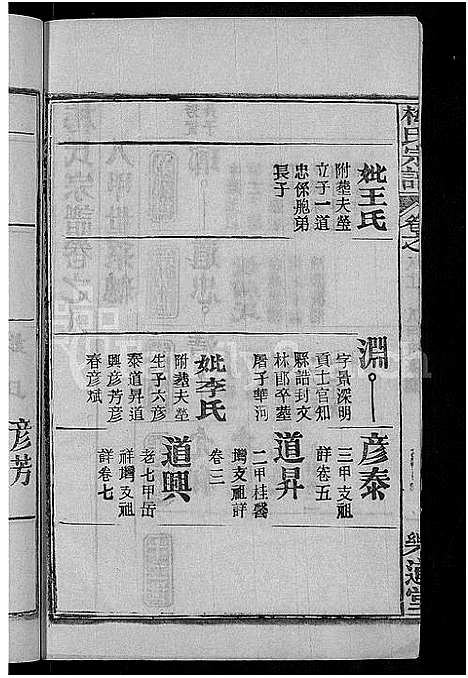 梅氏宗譜
卷之
樂道堂
妣王氏
附塟夫塋
立子一道
忠係胞弟
長子
淵
字景深明
貢士官知
縣誥封文
林郎卒塟
屠子華河
妣李氏
附塟夫塋
生子六彦
泰道昇道
興彦芳彦
春彦斌
彦泰
三甲支祖
詳卷五
道昇
二甲桂醫
灣支祖詳
卷二
道興
老七甲岳
祥灣支祖
詳卷七
彦芳